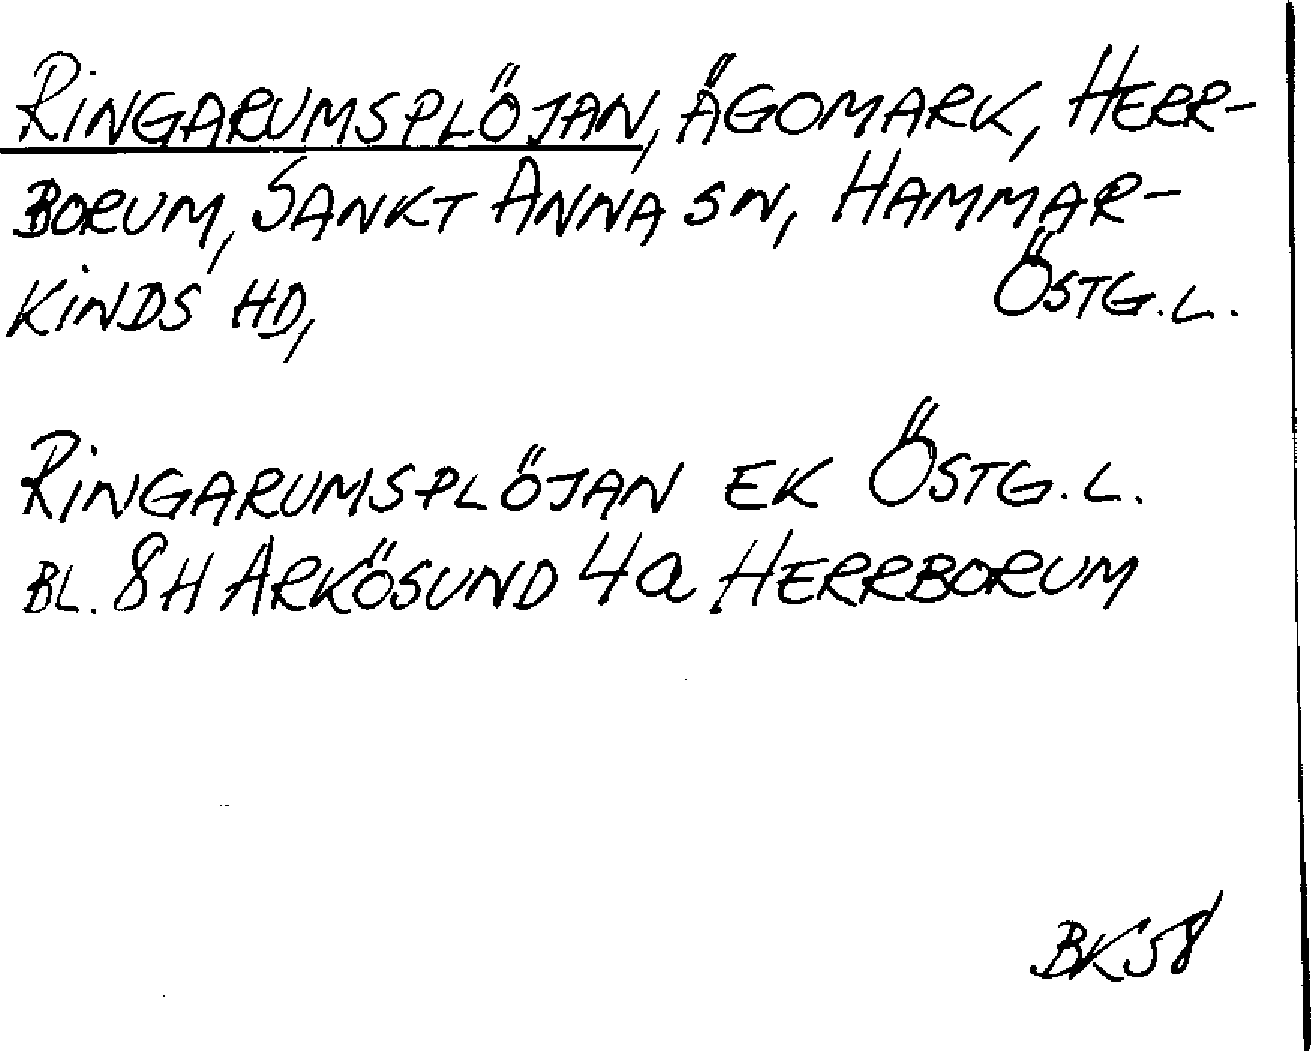 RINGARUMSPLÖJAN, ÄGOMARK, HERR-
BORUM, SANKT ANNA SN, HAMMAR-
KINDS HD, ÖSTG.L.
RINGARUMSPLÖJAN EK ÖSTG.L.
BL. 8H ARKÖSUND 4a HERRBORUM
BK58